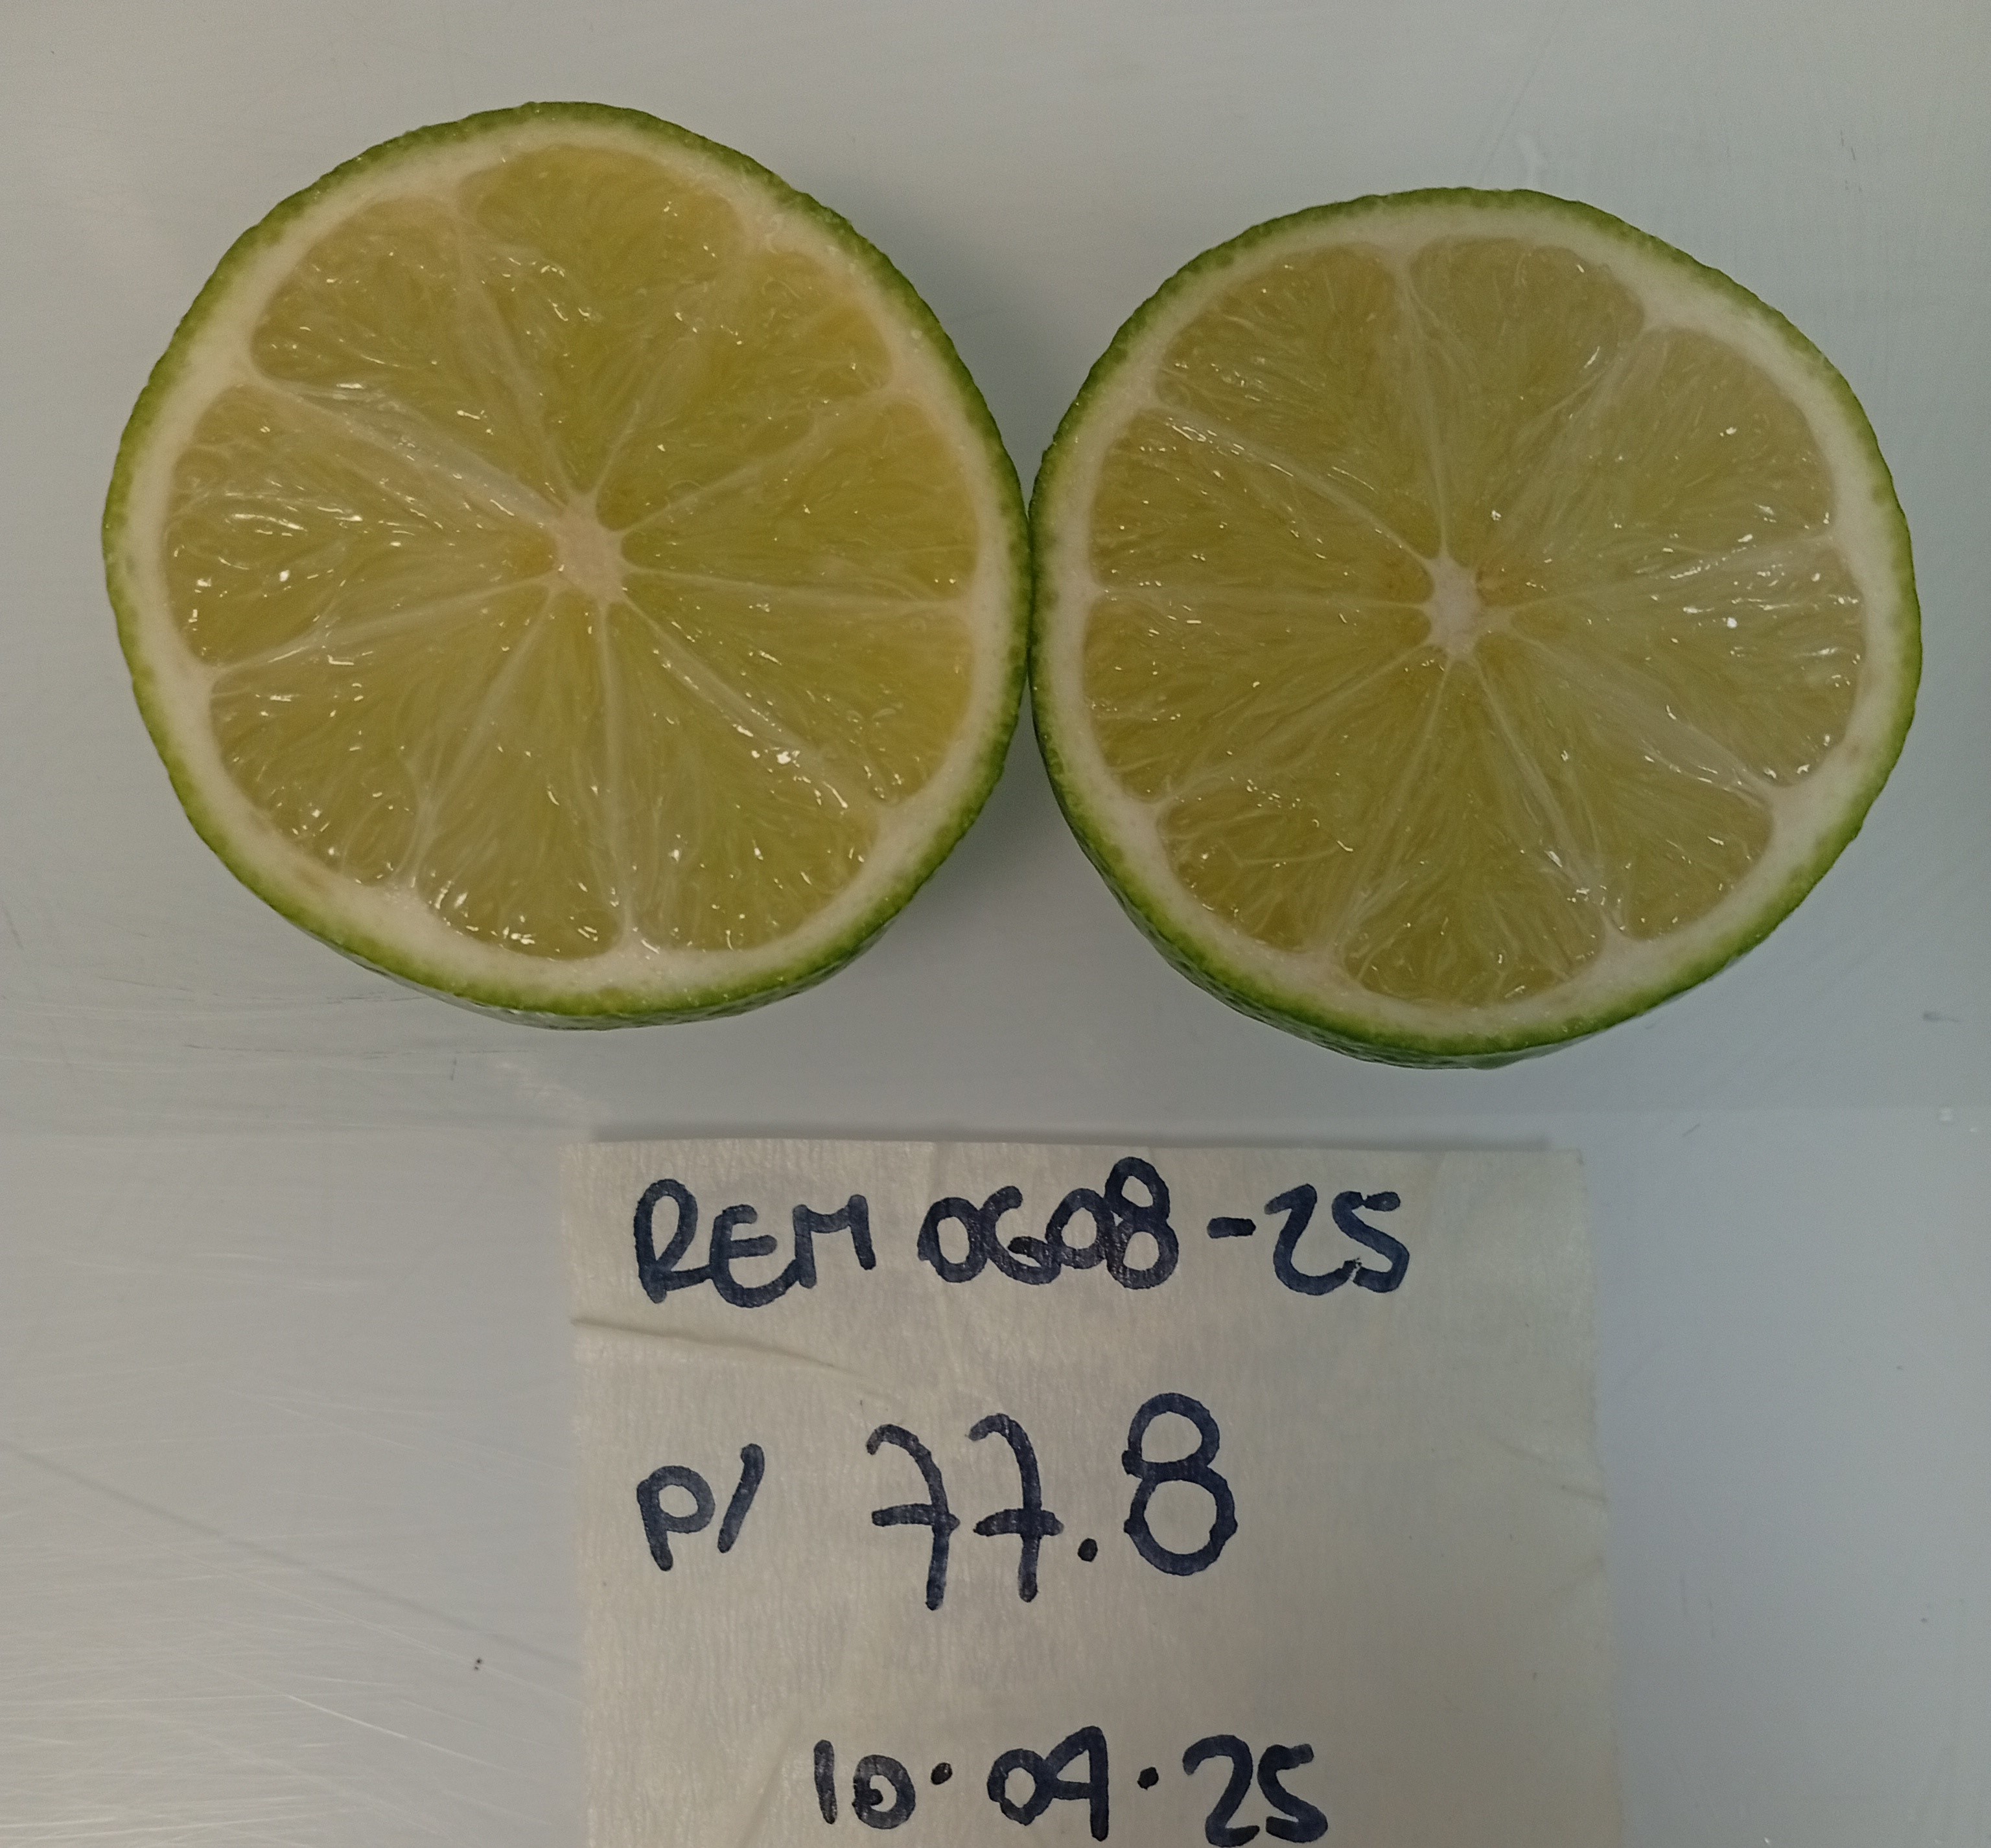 REM 0608-25
P/ 77.8
10.09.25